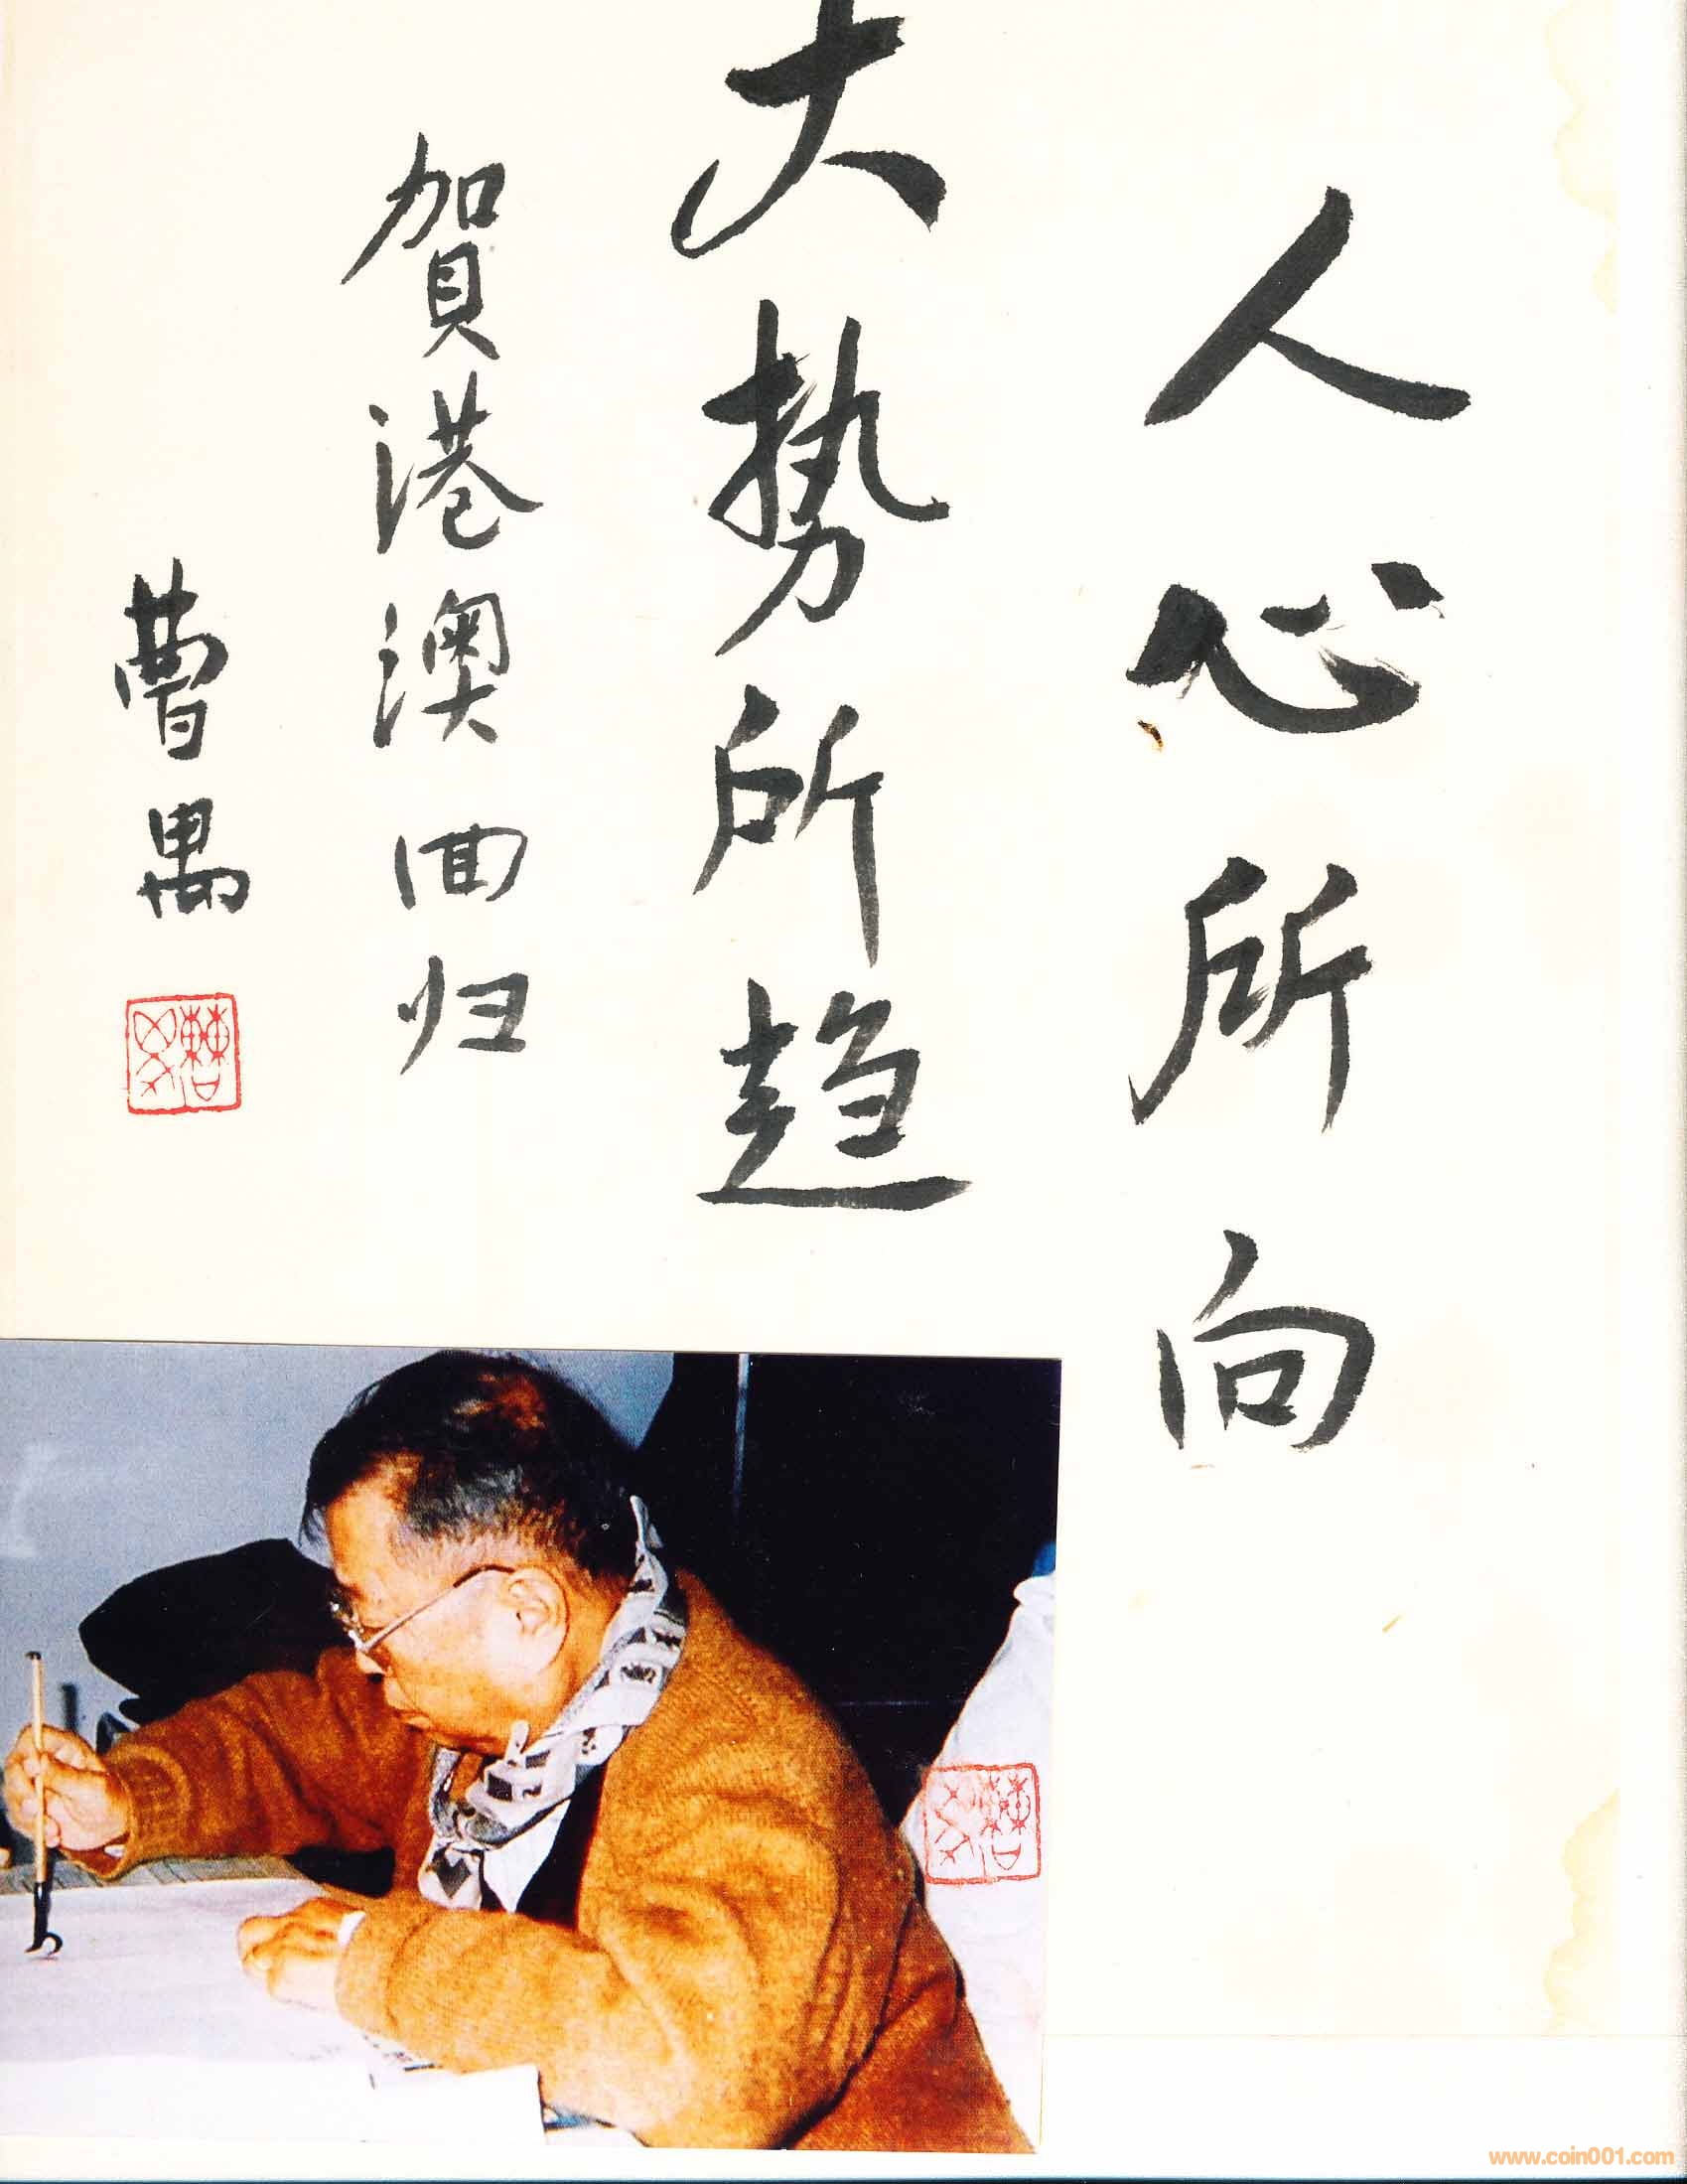 人心所向
大势所趋
賀港澳回归
曹禺
www.coin001.com